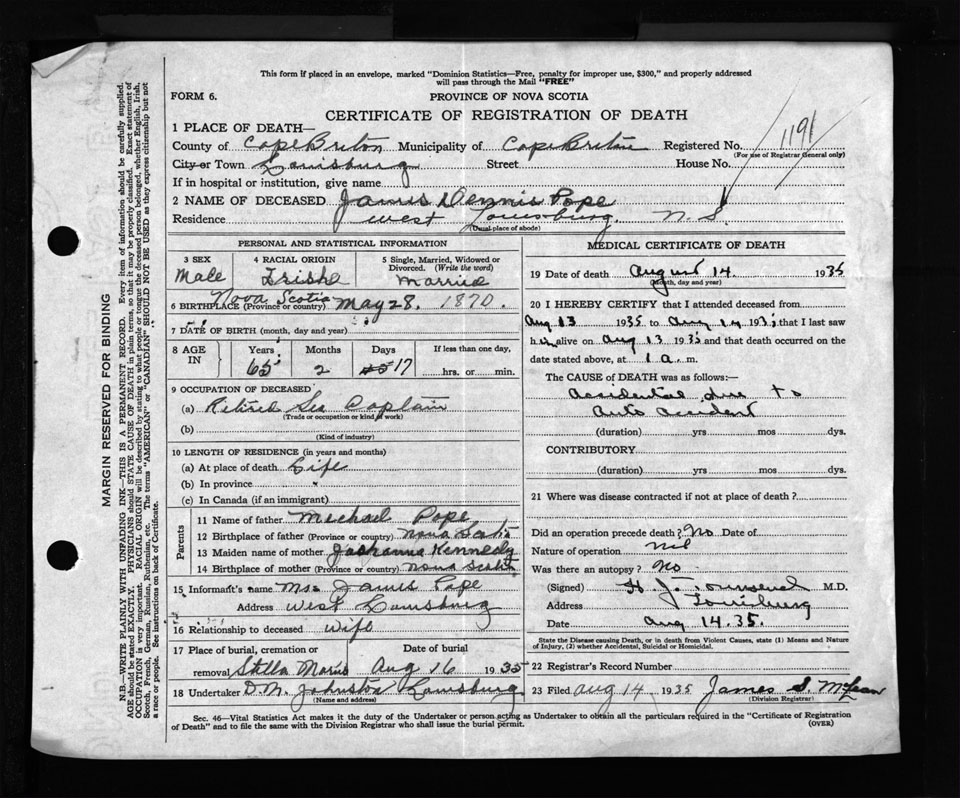 This form if placed in an envelope, marked "Dominion Statistics—Free, penalty for improper use, $300," and properly addressed
will pass through the Mail "FREE"
FORM 6.
PROVINCE OF NOVA SCOTIA
CERTIFICATE OF REGISTRATION OF DEATH
1191
1 PLACE OF DEATH—
County of Cape Breton Municipality of Cape Breton Registered No.
(For use of Registrar General only)
City or Town Louisburg Street House No.
If in hospital or institution, give name
2 NAME OF DECEASED James Dennis Pope
Residence West Louisburg. N. S.
(Usual place of abode)
PERSONAL AND STATISTICAL INFORMATION
3 SEX 4 RACIAL ORIGIN 5 Single, Married, Widowed or
Divorced. (Write the word)
Male Irish Married
Nova Scotia
6 BIRTHPLACE (Province or country) May 28. 1870.
7 DATE OF BIRTH (month, day and year)
8 AGE IN Years Months Days If less than one day,
65 2 17 hrs. or min.
9 OCCUPATION OF DECEASED
(a) Retired Sea Captain
(Trade or occupation or kind of work)
(b)
(Kind of industry)
10 LENGTH OF RESIDENCE (in years and months)
(a) At place of death Life
(b) In province "
(c) In Canada (if an immigrant)
Parents
11 Name of father Micheal Pope
12 Birthplace of father (Province or country) Nova Scotia
13 Maiden name of mother Johanna Kennedy
14 Birthplace of mother (Province or country) Nova Scotia
15 Informant's name Mrs James Pope
Address West Louisburg
16 Relationship to deceased Wife
17 Place of burial, cremation or Date of burial
removal Stella Maris Aug 16 1935
18 Undertaker D.M. Johnston Louisburg
(Name and address)
MEDICAL CERTIFICATE OF DEATH
19 Date of death August 14 1935
(Month, day and year)
20 I HEREBY CERTIFY that I attended deceased from
Aug 13 1935 to Aug 14 193 that I last saw
h alive on Aug 13 1935 and that death occurred on the
date stated above, at 1 a. m.
The CAUSE of DEATH was as follows:—
Accidental due to
Auto accident
(duration) yrs mos dys.
CONTRIBUTORY
(duration) yrs mos dys.
21 Where was disease contracted if not at place of death?
Did an operation precede death? No Date of
Nature of operation Nil
Was there an autopsy? No
(Signed) M.D.
Address Louisburg
Date Aug 14.35.
State the Disease causing Death, or in death from Violent Causes, state (1) Means and Nature
of Injury, (2) whether Accidental, Suicidal or Homicidal.
22 Registrar's Record Number
23 Filed Aug 14 1935 James S. McLean
(Division Registrar)
Sec. 46—Vital Statistics Act makes it the duty of the Undertaker or person acting as Undertaker to obtain all the particulars required in the "Certificate of Registration
of Death" and to file the same with the Division Registrar who shall issue the burial permit. (OVER)
MARGIN RESERVED FOR BINDING
N.B.—WRITE PLAINLY WITH UNFADING INK—THIS IS A PERMANENT RECORD. Every item of information should be carefully supplied.
AGE should be stated EXACTLY. PHYSICIANS should STATE CAUSE OF DEATH in plain terms, so that it may be properly classified. Exact statement of
OCCUPATION is very important. RACIAL ORIGIN will be described by stating to what people or tongue the deceased person belonged, whether English, Irish,
Scotch, French, German, Russian, Ruthenian, etc. The terms "AMERICAN" or "CANADIAN" SHOULD NOT BE USED as they express citizenship but not
a race or people. See instructions on back of Certificate.